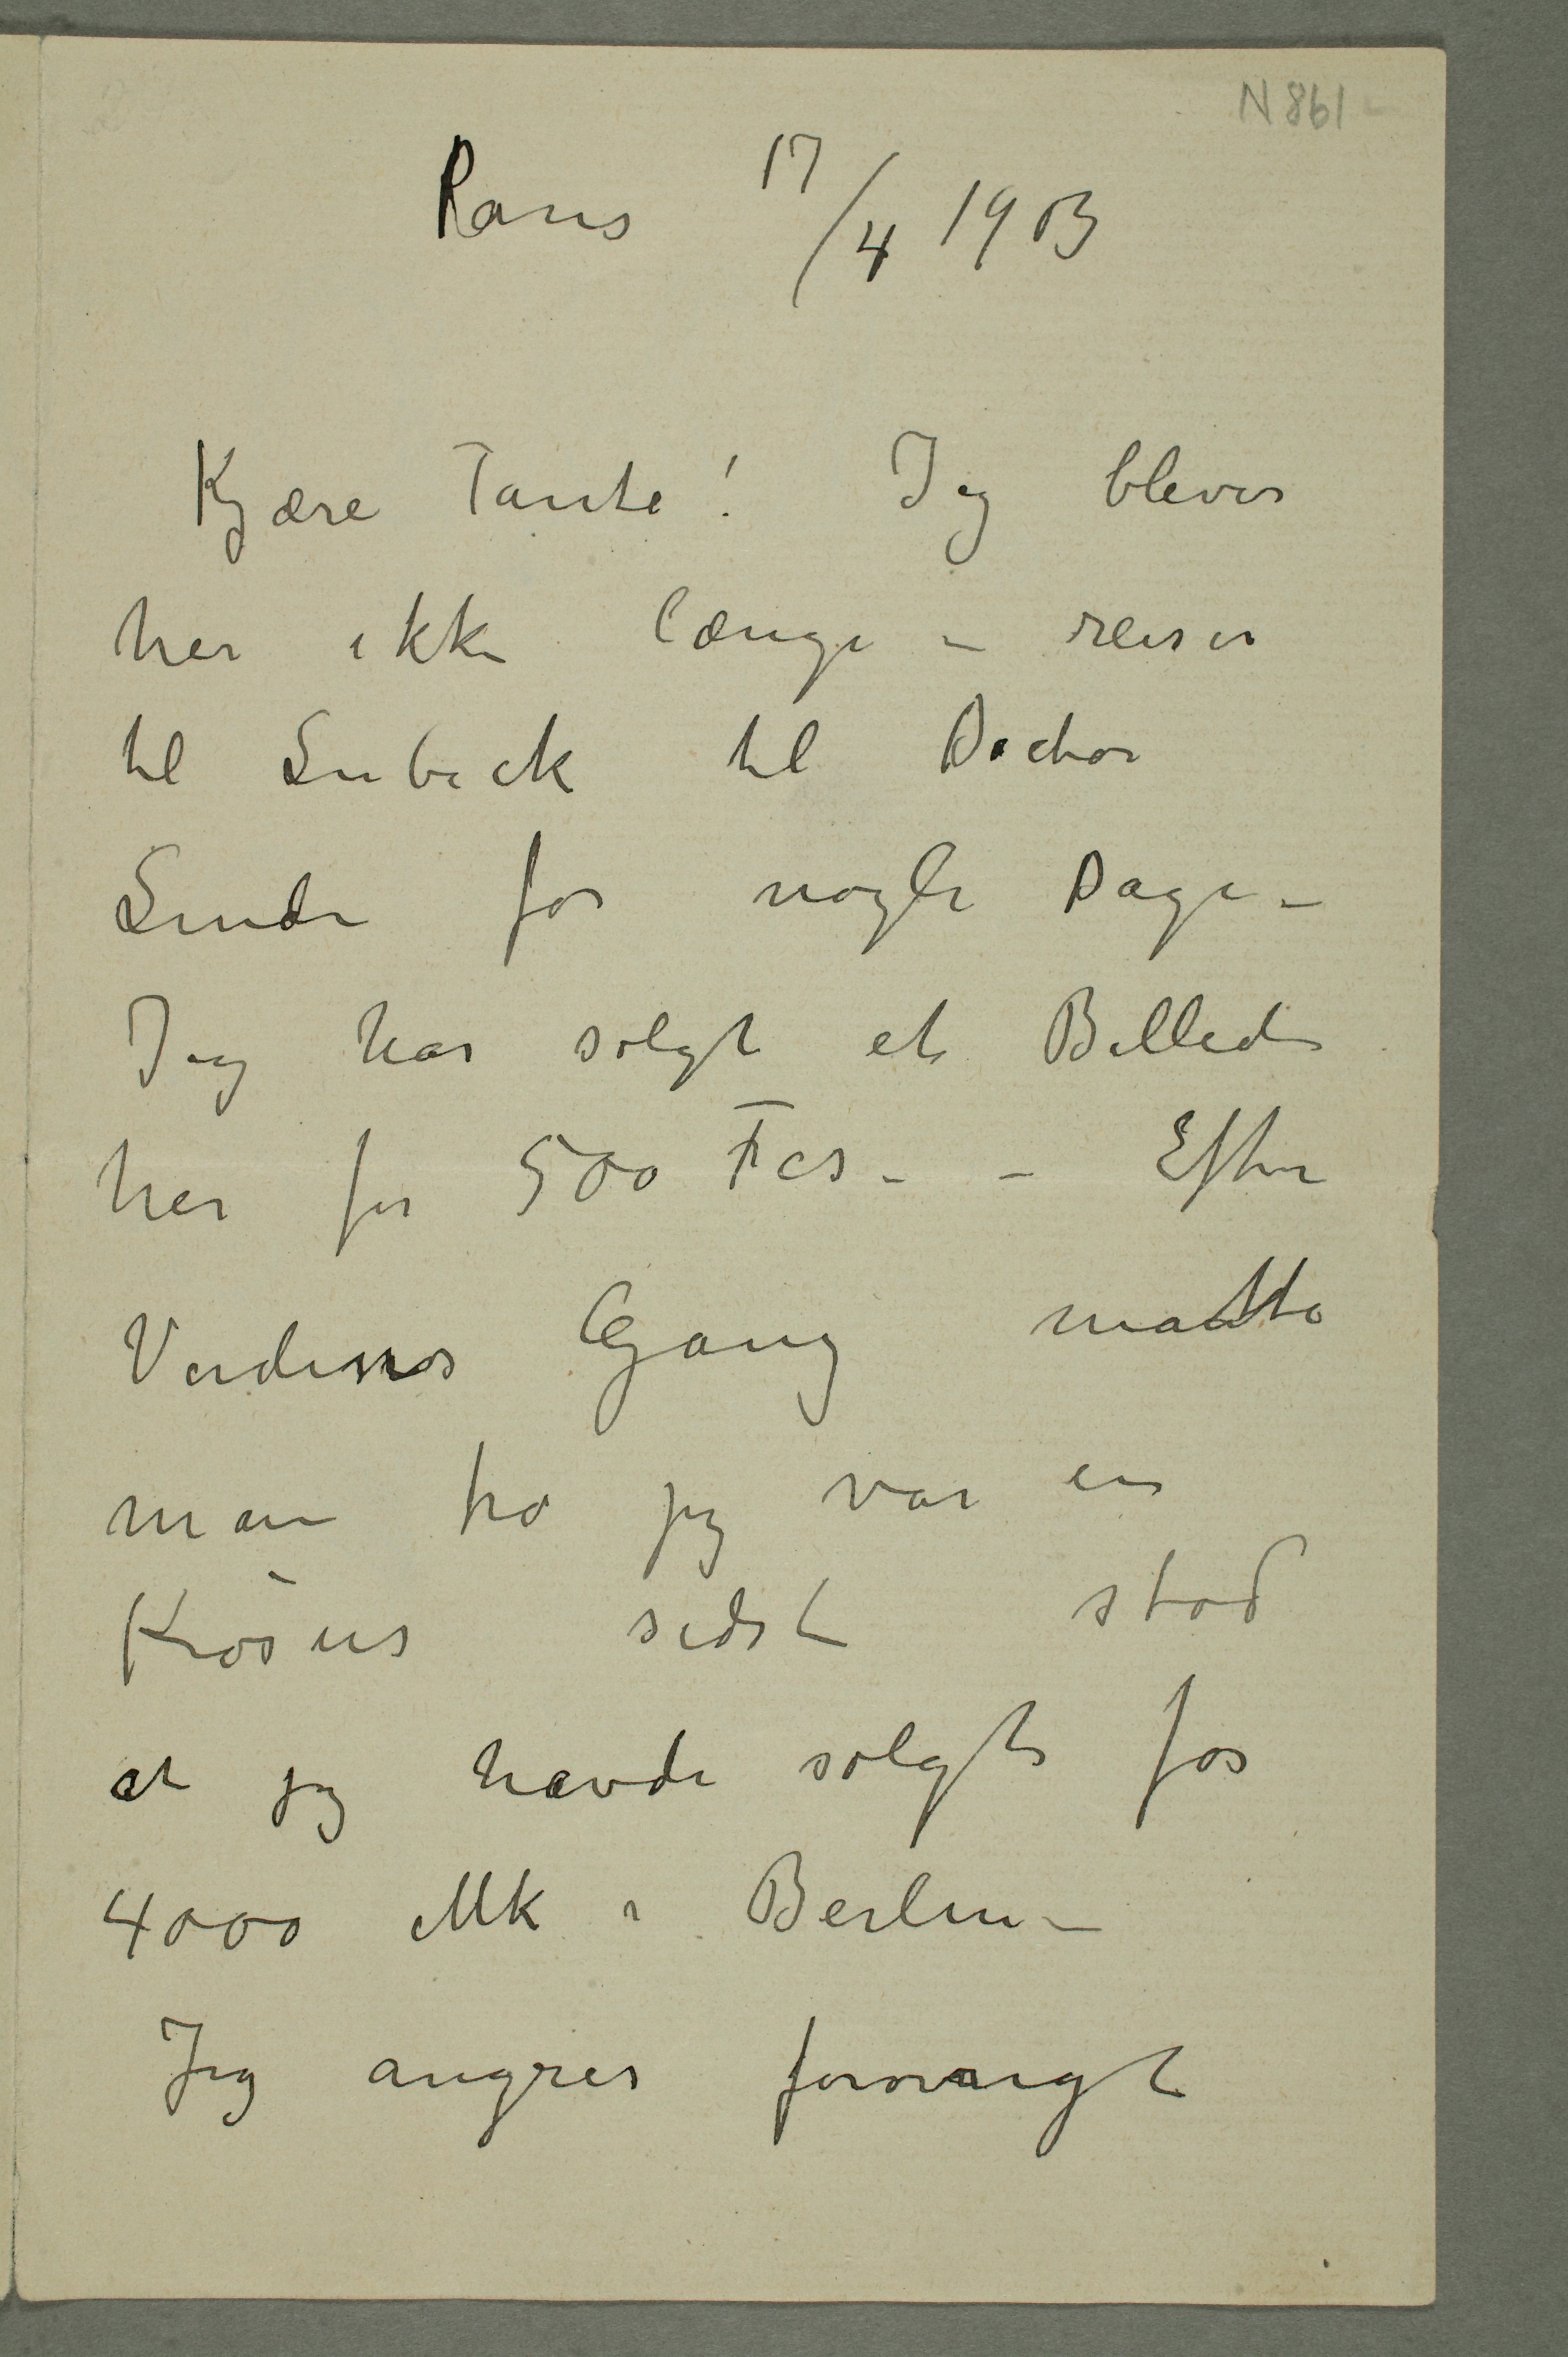 N 861
Paris 17/4 1903
Kjære Tante! Jeg bliver
her ikke længe – reiser
til Lubeck til Doctor
Linde for nogle Dage –
Jeg har solgt et Billede
her for 500 Fcs – – Efter
Verdens Gang måtte
man tro jeg var en
Krøsus sidst stod
at jeg havde solgt for
4000 Mk i Berlin –
Jeg angrer forøvrigt